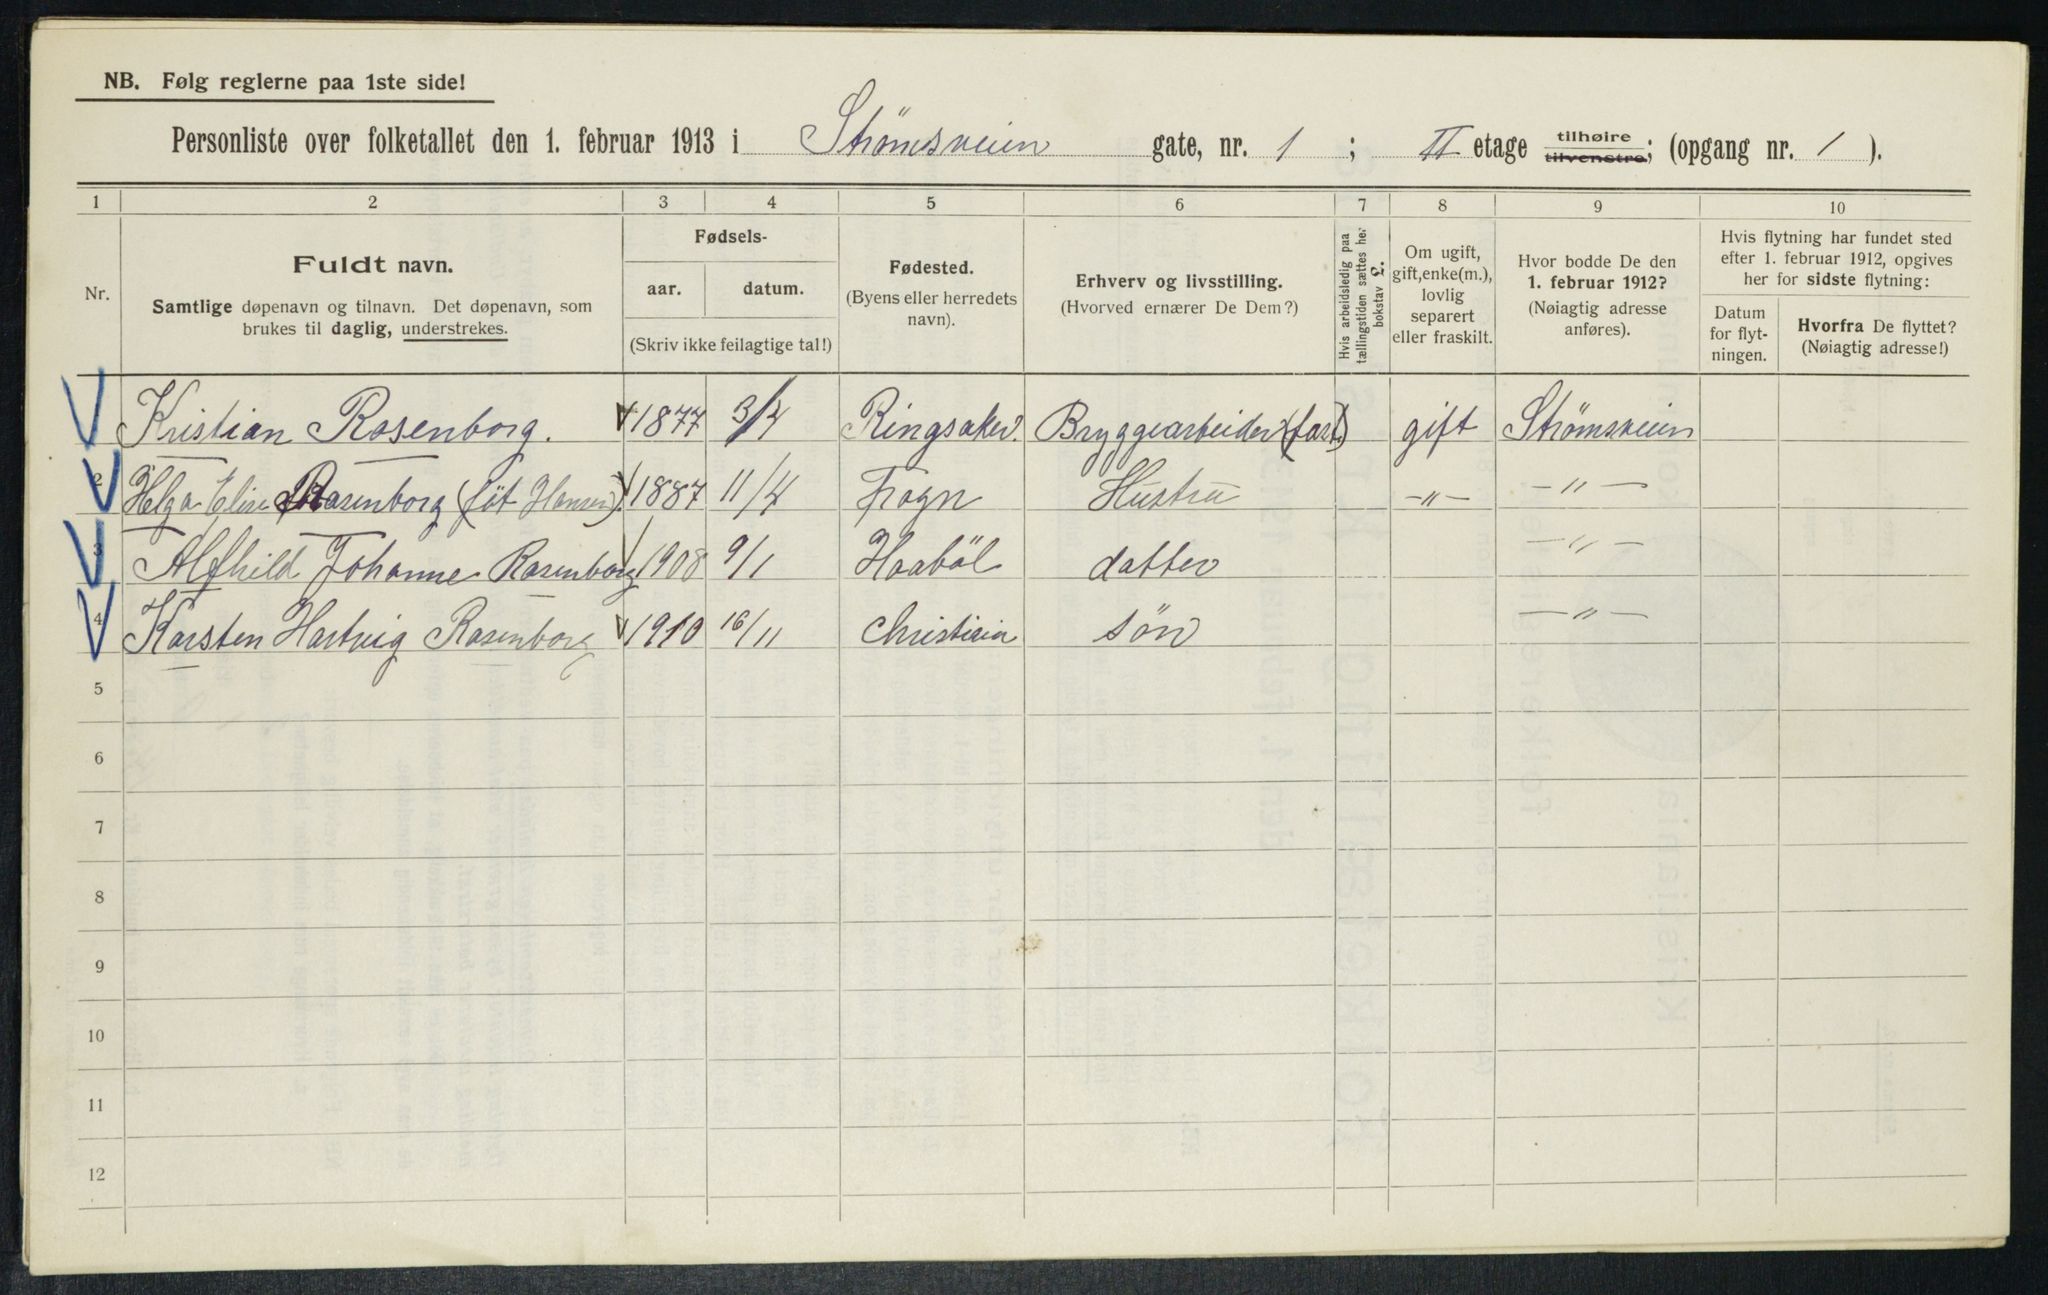 NB. Følg reglerne paa 1ste side!
Personliste over folketallet den 1. februar 1913 i Strömsveien gate, nr. 1 ; II etage tilhøire tilvenstre; (opgang nr. 1 ).
1 2 3 4 5 6 7 8 9 10
Nr.
Fuldt navn.
Samtlige døpenavn og tilnavn. Det døpenavn, som
brukes til daglig, understrekes.
Fødsels-
aar. datum.
(Skriv ikke feilagtige tal!)
Fødested.
(Byens eller herredets
navn).
Erhverv og livsstilling.
(Hvorved ernærer De Dem?)
Hvis arbeidsledig paa
tællingstiden sættes her
bokstav L.
Om ugift,
gift, enke(m.),
lovlig
separert
eller fraskilt.
Hvor bodde De den
1. februar 1912?
(Nøiagtig adresse
anføres).
Hvis flytning har fundet sted
efter 1. februar 1912, opgives
her for sidste flytning:
Datum
for flyt-
ningen.
Hvorfra De flyttet?
(Nøiagtig adresse!)
Kristian Rosenborg. 1877 3/2 Ringsaker. Bryggearbeider (fast) gift Strömsveien
2 Helga Elise Rosenborg (föt Hansen) 1887 11/4 Frogn Hustru -"- -"-
3 Alfhild Johanne Rosenborg 1908 9/1 Haaböl datter -"-
4 Karsten Hartvig Rosenborg 1910 16/11 Christiania sön -"-
5
6
7
8
9
10
11
12